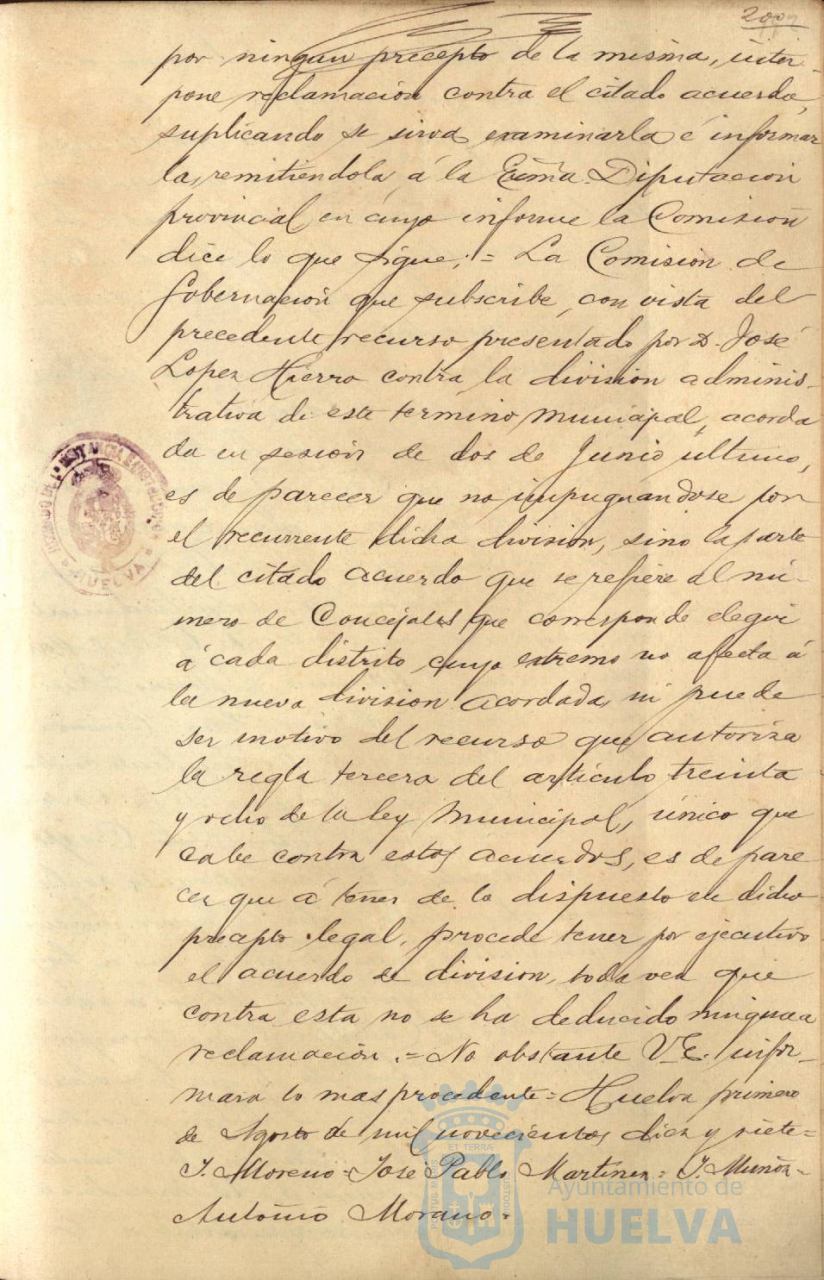 200
por ningun precepto de la misma, inter-
pone reclamación contra el citado acuerdo,
suplicando se sirva examinarla é informar
la, remitiendola, á la Exma. Diputacion
provincial en cuyo informe la Comision
dice lo que sigue: = La Comision de
Gobernación que subscribe, con vista del
precedente recurso presentado por D. José
Lopez Hierro contra la division adminis-
trativa de este termino municipal, acorda
da en sesión de dos de Junio ultimo,
es de parecer que no impugnandose por
el recurrente dicha division, sino la parte
del citado acuerdo que se refiere al nú-
mero de Concejales que corresponde elegir
á cada distrito cuyo extremo no afecta á
la nueva division acordada, ni puede
ser motivo del recurso que autoriza
la regla tercera del artículo treinta
y ocho de la ley Municipal, único que
cabe contra estos acuerdos, es de pare
cer que á tenor de lo dispuesto en dicho
precepto legal, procede tener por ejecutivo
el acuerdo de division, toda vez que
contra esta no se ha deducido ninguna
reclamación. = No obstante V.E. infor-
mará lo mas procedente = Huelva primero
de Agosto de mil novecientos diez y siete =
J. Moreno = José Pablo Martinez = J. Muñoz =
Antonio Morano =
HUELVA
Ayuntamiento de
HUELVA